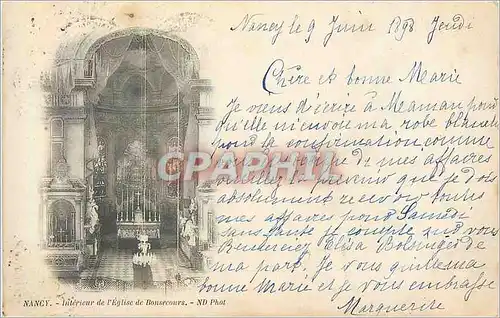 Nancy le 9 Juin 1898 Jeudi
Chère et bonne Marie
Je viens d'écrire à Maman pour
qu'elle m'envoie ma robe blanche
pour la confirmation comme
de mes affaires
veuillez prévenir que je dois
absolument recevoir toutes
mes affaires pour Samedi
sans faute je compte sur vous
Remerciez Elisa de
ma part. Je vous quitte ma
bonne Marie et je vous embrasse
Marguerite
CPAPHIL.COM
NANCY. - Intérieur de l'Église de Bonsecours. - ND Phot